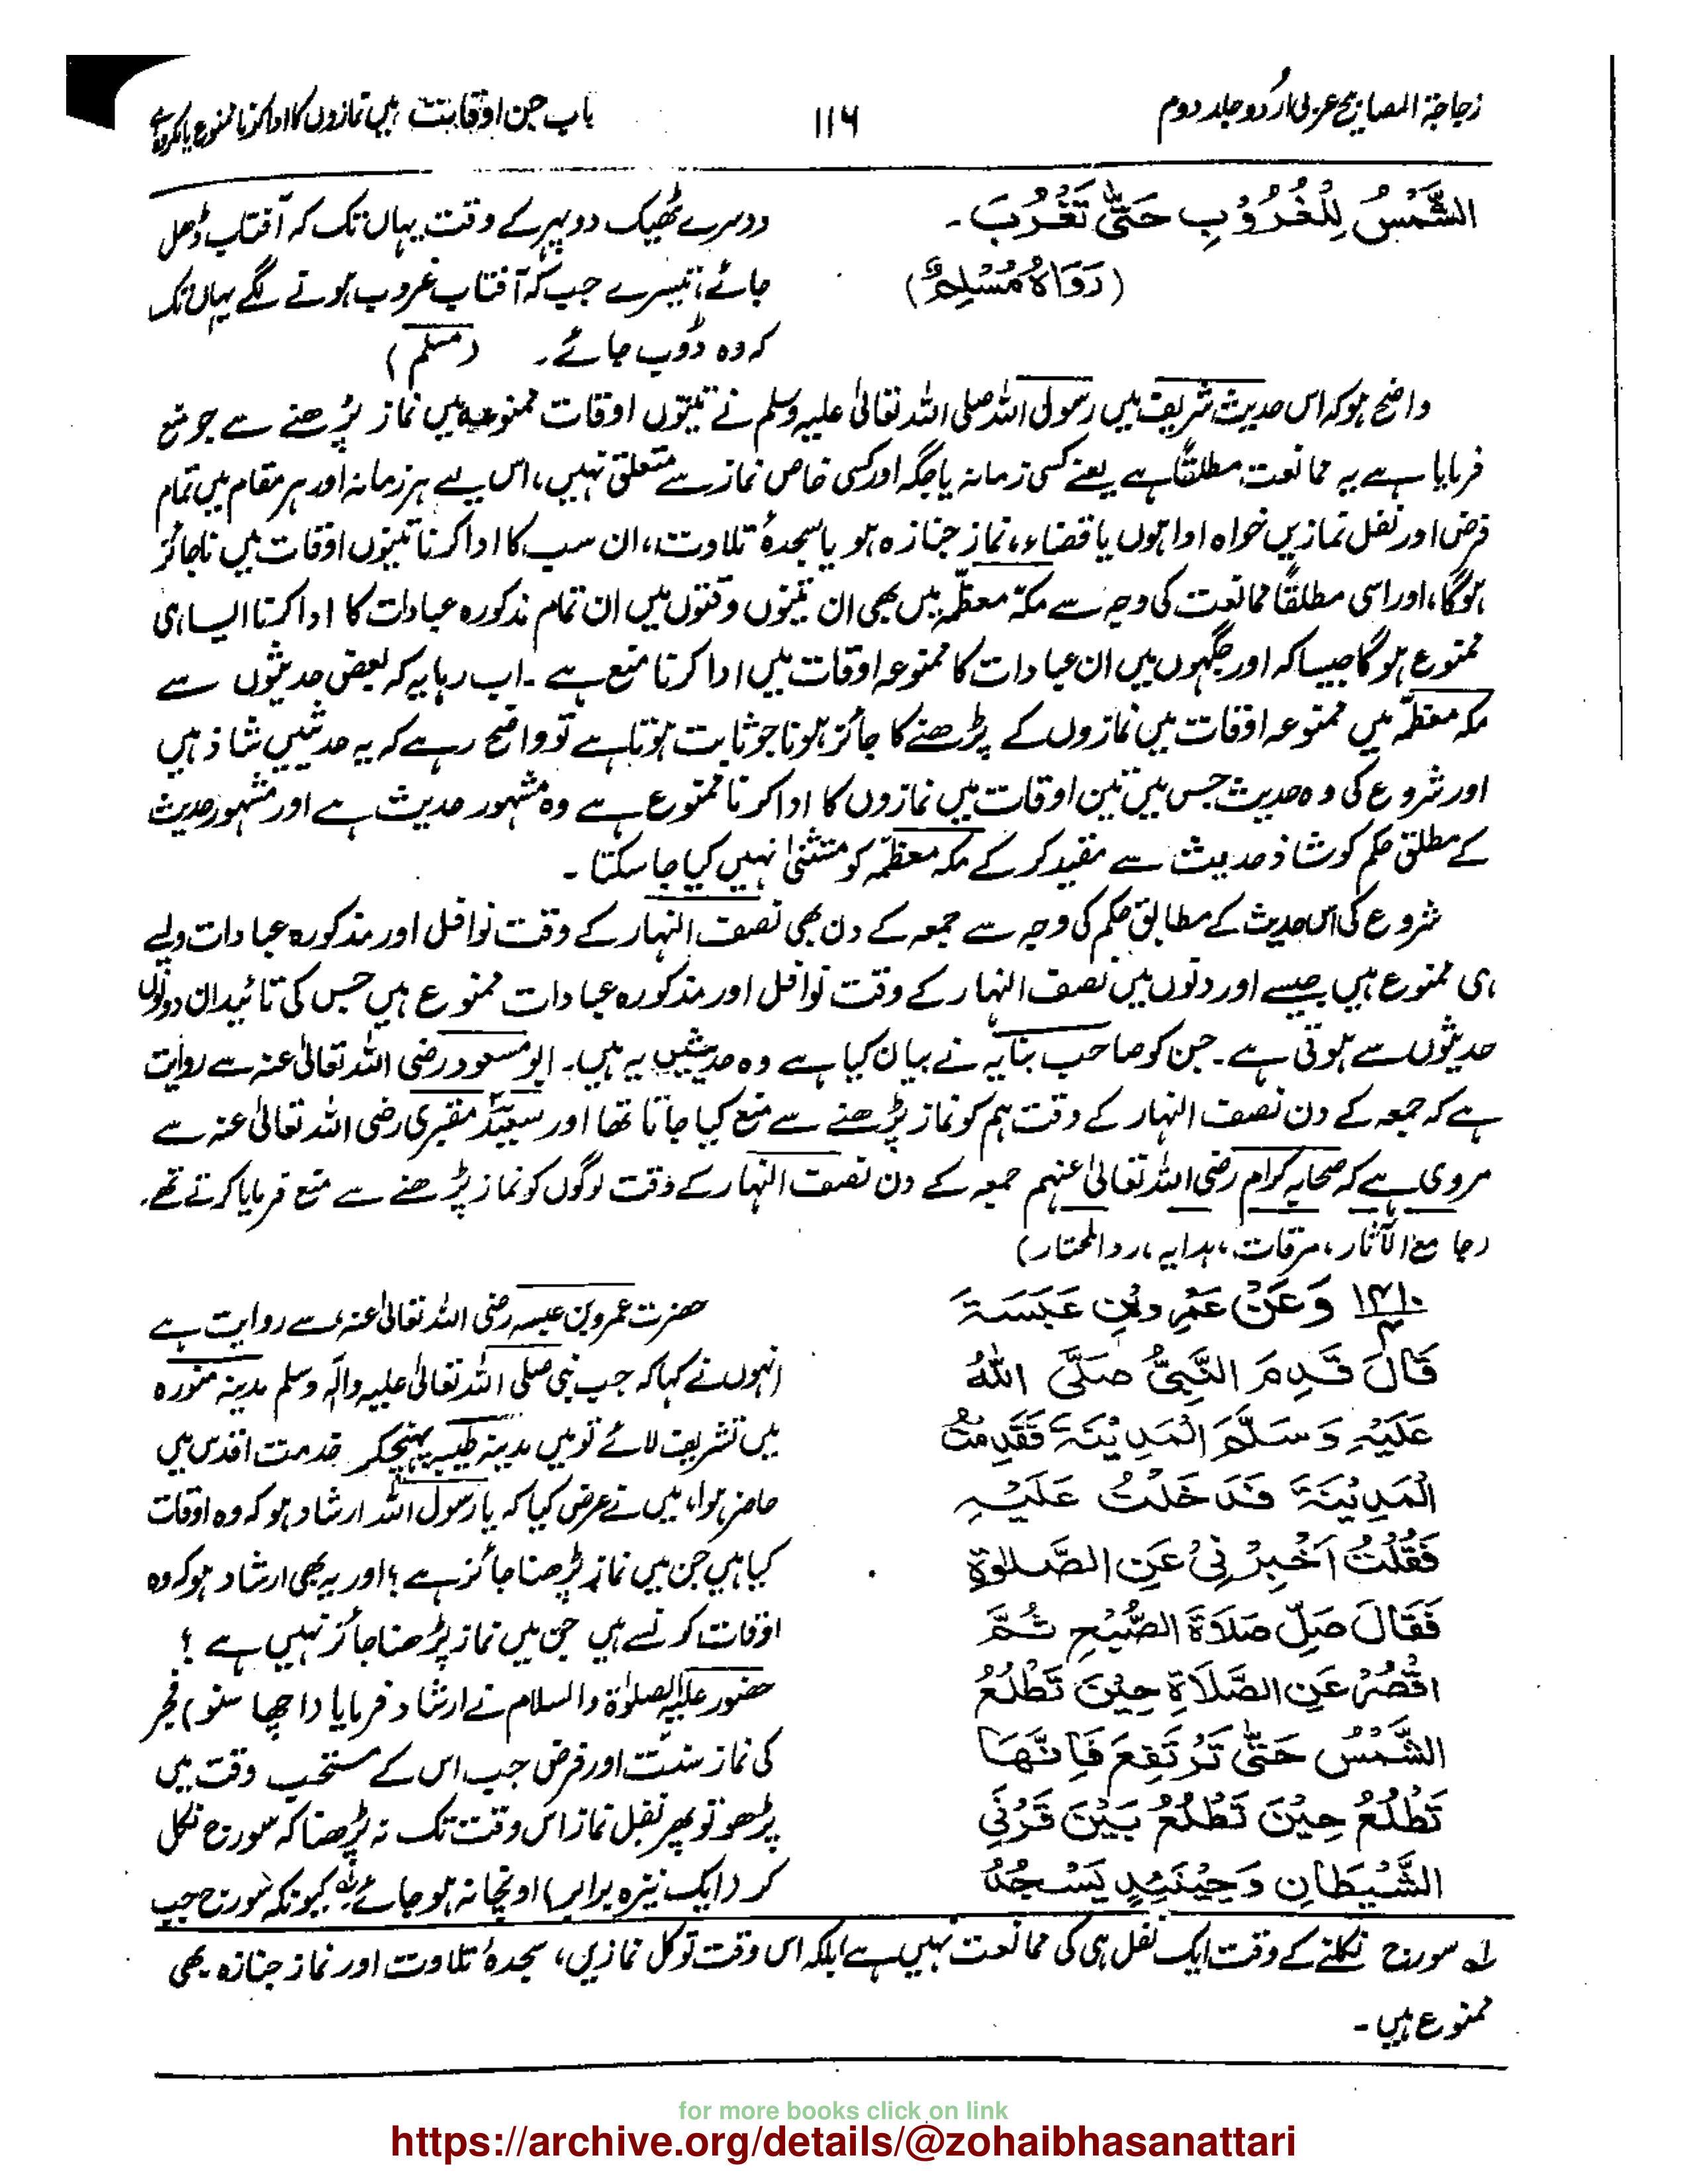 زجاجۃ المصابیح عربی اُردو جلد دوم
۱۱۶
باب جن اوقات میں نمازوں کا ادا کرنا ممنوع یا مکروہ ہے
الشَّمْسُ لِلْغُرُوْبِ حَتّٰى تَغْرُبَ۔
(رَوَاهُ مُسْلِمٌ)
دوسرے ٹھیک دوپہر کے وقت یہاں تک کہ آفتاب ڈھل
جائے، تیسرے جب کہ آفتاب غروب ہونے لگے یہاں تک
کہ وہ ڈوب جائے۔ (مسلم)
واضح ہو کہ اس حدیث شریف میں رسول اللہ صلی اللہ تعالیٰ علیہ وسلم نے تینوں اوقات ممنوعہ میں نماز پڑھنے سے جو منع
فرمایا ہے یہ ممانعت مطلقاً ہے یعنے کسی زمانہ یا جگہ اور کسی خاص نماز سے متعلق نہیں، اس لیے ہر زمانہ اور ہر مقام میں تمام
فرض اور نفل نمازیں خواہ ادا ہوں یا قضاء، نماز جنازہ ہو یا سجدۂ تلاوت، ان سب کا ادا کرنا تینوں اوقات میں ناجائز
ہوگا، اور اسی مطلقاً ممانعت کی وجہ سے مکہ معظمہ میں بھی ان تینوں وقتوں میں ان تمام مذکورہ عبادات کا ادا کرنا ایسا ہی
ممنوع ہوگا جیسا کہ اور جگہوں میں ان عبادات کا ممنوعہ اوقات میں ادا کرنا منع ہے۔ اب رہا یہ کہ بعض حدیثوں سے
مکہ معظمہ میں ممنوعہ اوقات میں نمازوں کے پڑھنے کا جائز ہونا جو ثابت ہوتا ہے تو واضح رہے کہ یہ حدیثیں شاذ ہیں
اور شروع کی وہ حدیث جس میں تین اوقات میں نمازوں کا ادا کرنا ممنوع ہے وہ مشہور حدیث ہے اور مشہور حدیث
کے مطلق حکم کو شاذ حدیث سے مقید کر کے مکہ معظمہ کو مستثنیٰ نہیں کیا جا سکتا۔
شروع کی اس حدیث کے مطابق حکم کی وجہ سے جمعہ کے دن بھی نصف النہار کے وقت نوافل اور مذکورہ عبادات ویسے
ہی ممنوع ہیں جیسے اور دنوں میں نصف النہار کے وقت نوافل اور مذکورہ عبادات ممنوع ہیں جس کی تائید ان دونوں
حدیثوں سے ہوتی ہے۔ جن کو صاحب بنایہ نے بیان کیا ہے وہ حدیثیں یہ ہیں۔ ابو مسعود رضی اللہ تعالیٰ عنہ سے روایت
ہے کہ جمعہ کے دن نصف النہار کے وقت ہم کو نماز پڑھنے سے منع کیا جاتا تھا اور سعید مقبری رضی اللہ تعالیٰ عنہ سے
مروی ہے کہ صحابہ کرام رضی اللہ تعالیٰ عنہم جمعہ کے دن نصف النہار کے وقت لوگوں کو نماز پڑھنے سے منع فرمایا کرتے تھے۔
(جامع الآثار، مرقات، ہدایہ، ردالمحتار)
وَعَنْ عَمْرِو بْنِ عَبَسَةَ
قَالَ قَدِمَ النَّبِيُّ صَلَّى اللهُ
عَلَيْهِ وَسَلَّمَ الْمَدِيْنَةَ فَقَدِمْتُ
الْمَدِيْنَةَ فَدَخَلْتُ عَلَيْهِ
فَقُلْتُ اَخْبِرْنِيْ عَنِ الصَّلوٰةِ
فَقَالَ صَلِّ صَلَاةَ الصُّبْحِ ثُمَّ
اقْصُرْ عَنِ الصَّلَاةِ حِيْنَ تَطْلُعُ
الشَّمْسُ حَتّٰى تَرْتَفِعَ فَاِنَّهَا
تَطْلُعُ حِيْنَ تَطْلُعُ بَيْنَ قَرْنَيِ
الشَّيْطَانِ وَحِيْنَئِذٍ يَسْجُدُ
حضرت عمرو بن عبسہ رضی اللہ تعالیٰ عنہ سے روایت ہے
انہوں نے کہا کہ جب نبی صلی اللہ تعالیٰ علیہ والہٖ وسلم مدینہ منورہ
میں تشریف لائے تو میں مدینہ طیبہ پہنچکر خدمت اقدس میں
حاضر ہوا، میں نے عرض کیا کہ یا رسول اللہ ارشاد ہو کہ وہ اوقات
کیا ہیں جن میں نماز پڑھنا جائز ہے؟ اور یہ بھی ارشاد ہو کہ وہ
اوقات کونسے ہیں جن میں نماز پڑھنا جائز نہیں ہے؟
حضور علیہ الصلوٰۃ والسلام نے ارشاد فرمایا (اچھا سنو) فجر
کی نماز سنت اور فرض جب اس کے مستحب وقت میں
پڑھو تو پھر نفل نماز اس وقت تک نہ پڑھنا کہ سورج نکل
کر (ایک نیزہ برابر) اونچا نہ ہو جائے لہ کیونکہ سورج جب
لہ سورج نکلنے کے وقت ایک نفل ہی کی ممانعت نہیں ہے بلکہ اس وقت تو کل نمازیں، سجدۂ تلاوت اور نماز جنازہ بھی
ممنوع ہیں۔
for more books click on link
https://archive.org/details/@zohaibhasanattari